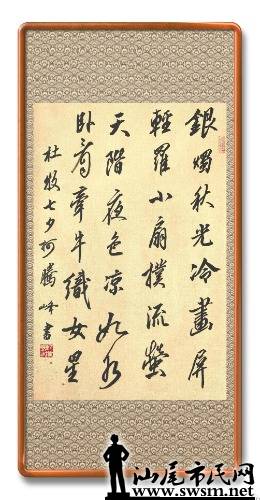 銀燭秋光冷畫屏
輕羅小扇撲流螢
天階夜色凉如水
卧看牽牛織女星
杜牧七夕騰峰書
汕尾市民网
www.swsm.net